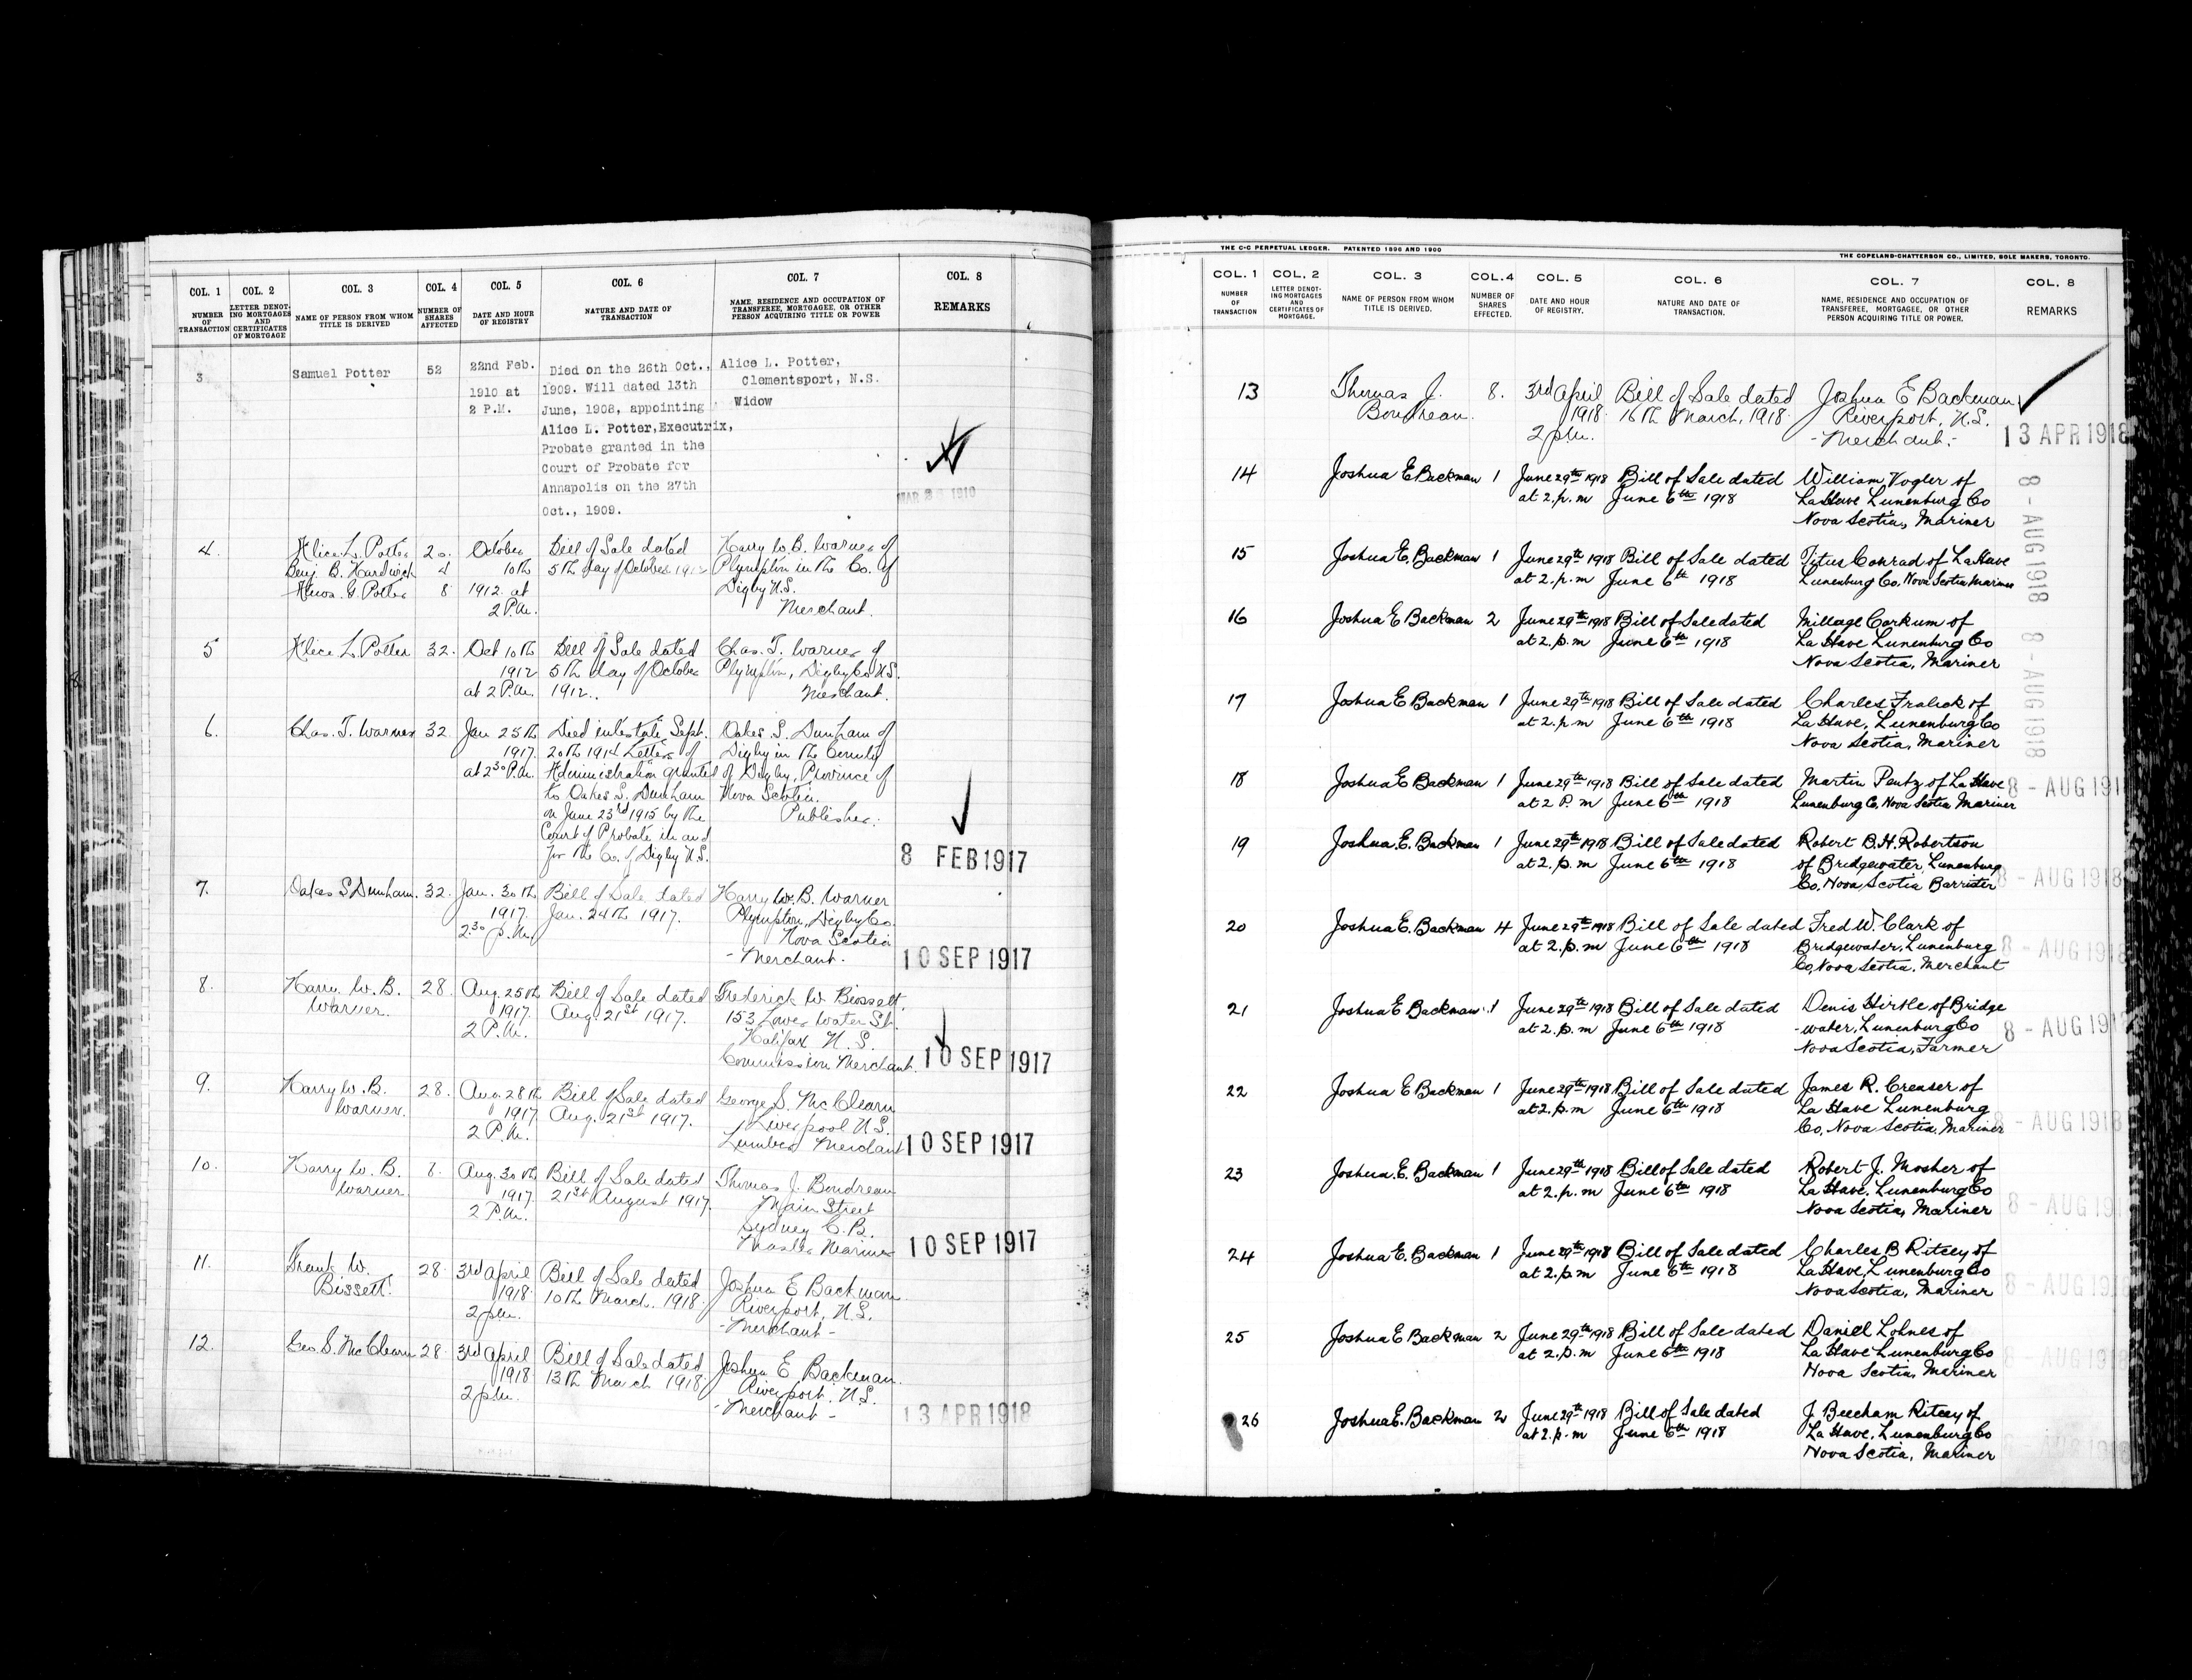 COL. 1 COL. 2 COL. 3 COL. 4 COL. 5 COL. 6 COL. 7 COL. 8
NUMBER OF TRANSACTION
LETTER DENOTING MORTGAGES AND CERTIFICATES OF MORTGAGE
NAME OF PERSON FROM WHOM TITLE IS DERIVED
NUMBER OF SHARES AFFECTED
DATE AND HOUR OF REGISTRY
NATURE AND DATE OF TRANSACTION
NAME, RESIDENCE AND OCCUPATION OF TRANSFEREE, MORTGAGEE, OR OTHER PERSON ACQUIRING TITLE OR POWER
REMARKS
3 Samuel Potter 52 22nd Feb. Died on the 26th Oct., Alice L. Potter,
1910 at 1909. Will dated 13th Clementsport, N.S.
2 P.M. June, 1908, appointing Widow
Alice L. Potter, Executrix,
Probate granted in the
Court of Probate for
Annapolis on the 27th
Oct., 1909.
1910
4. Alice L. Potter 20. October Bill of Sale dated Harry W. B. Warner of
Benj. B. Hardwick 4 10th 5th day of October 1912 Plympton in the Co. of
G. Potter 8 1912 at Digby N.S.
2 P.M. Merchant.
5 Alice L. Potter 32. Oct 10th Bill of Sale dated Chas. T. Warner of
1912 5th day of October Plympton, Digby Co N.S.
at 2 P.M. 1912. Merchant.
6. Chas. T. Warner 32. Jan 25th Died intestate Sept. Oakes S. Dunham of
1917. 20th 1914 Letters of Digby in the County
at 2 30 P.M. Administration granted of Digby, Province of
to Oakes S. Dunham Nova Scotia.
on June 23rd 1915 by the Publisher.
Court of Probate in and
for the Co. of Digby N.S.
8 FEB 1917
7. Oakes S Dunham. 32. Jan. 30th Bill of Sale dated Harry W. B. Warner
1917. Jan. 24th 1917. Plympton, Digby Co.
2.30 p.m. Nova Scotia
- Merchant. 10 SEP 1917
8. Harry W. B. 28. Aug. 25th Bill of Sale dated Frederick W. Bissett
Warner. 1917. Aug. 21st 1917. 153 Lower Water St.
2 P.M. Halifax N.S.
Commission Merchant. 10 SEP 1917
9. Harry W. B. 28. Aug. 28th Bill of Sale dated George S. McClearn
Warner. 1917 Aug. 21st 1917. Liverpool N.S.
2 P.M. Lumber Merchant 10 SEP 1917
10. Harry W. B. 8. Aug. 30th Bill of Sale dated Thomas J. Boudreau
Warner 1917. 21st August 1917. Main Street
2 P.M. Sydney C.B.
Master Mariner 10 SEP 1917
11. Frank W. 28. 3rd April Bill of Sale dated Joshua E Backman
Bissett. 1918 10th March. 1918. Riverport, N.S.
2 p.m. - Merchant -
12. Geo S. McClearn 28 3rd April Bill of Sale dated Joshua E Backman.
1918 13th March 1918. Riverport. N.S.
2 p.m. - Merchant - 13 APR 1918
THE C-C PERPETUAL LEDGER. PATENTED 1896 AND 1900
THE COPELAND-CHATTERSON CO., LIMITED, SOLE MAKERS, TORONTO.
COL. 1 COL. 2 COL. 3 COL. 4 COL. 5 COL. 6 COL. 7 COL. 8
NUMBER OF TRANSACTION
LETTER DENOTING MORTGAGES AND CERTIFICATES OF MORTGAGE.
NAME OF PERSON FROM WHOM TITLE IS DERIVED.
NUMBER OF SHARES EFFECTED.
DATE AND HOUR OF REGISTRY.
NATURE AND DATE OF TRANSACTION.
NAME, RESIDENCE AND OCCUPATION OF TRANSFEREE, MORTGAGEE, OR OTHER PERSON ACQUIRING TITLE OR POWER.
REMARKS
13 Thomas J. 8. 3rd April Bill of Sale dated Joshua E Backman
Boudreau. 1918. 16th March, 1918. Riverport, N.S.
2 p.m. - Merchant.- 13 APR 1918
14 Joshua E Backman 1 June 29th 1918 Bill of Sale dated William Vogler of
at 2.p.m June 6th 1918 La Have Lunenburg Co
Nova Scotia, Mariner
8 - AUG 1918
15 Joshua E. Backman 1 June 29th 1918 Bill of Sale dated Titus Conrad of La Have
at 2.p.m June 6th 1918 Lunenburg Co, Nova Scotia Mariner
16 Joshua E Backman 2 June 29th 1918 Bill of Sale dated Millage Corkum of
at 2.p.m June 6th 1918 La Have Lunenburg Co
Nova Scotia, Mariner
8 - AUG 1918
17 Joshua E Backman 1 June 29th 1918 Bill of Sale dated Charles Fralick of
at 2.p.m June 6th 1918 La Have, Lunenburg Co
Nova Scotia, Mariner
18 Joshua E. Backman 1 June 29th 1918 Bill of Sale dated Martin Pentz of La Have
at 2 P.m June 6th 1918 Lunenburg Co, Nova Scotia Mariner 8 - AUG 191
19 Joshua.E. Backman 1 June 29th 1918 Bill of Sale dated Robert B.H. Robertson
at 2.p.m June 6th 1918 of Bridgewater, Lunenburg
Co, Nova Scotia Barrister 8 - AUG 1918
20 Joshua E. Backman 4 June 29th 1918 Bill of Sale dated Fred W. Clark of
at 2.p.m June 6th 1918 Bridgewater, Lunenburg
Co, Nova Scotia, Merchant 8 - AUG 1918
21 Joshua E Backman 1 June 29th 1918 Bill of Sale dated Denis Hirtle of Bridge
at 2.p.m June 6th 1918 -water, Lunenburg Co
Nova Scotia, Farmer 8 - AUG 191
22 Joshua E Backman 1 June 29th 1918 Bill of Sale dated James R. Creaser of
at 2.p.m June 6th 1918 La Have Lunenburg
Co, Nova Scotia, Mariner 8 - AUG 1918
23 Joshua.E. Backman 1 June 29th 1918 Bill of Sale dated Robert J. Mosher of
at 2.p.m June 6th 1918 La Have, Lunenburg Co
Nova Scotia, Mariner 8 - AUG 191
24 Joshua E. Backman 1 June 29th 1918 Bill of Sale dated Charles B Ritcey of
at 2.p.m June 6th 1918 La Have, Lunenburg Co
Nova Scotia, Mariner 8 - AUG 1918
25 Joshua E Backman 2 June 29th 1918 Bill of Sale dated Daniel Lohnes of
at 2.p.m June 6th 1918 La Have Lunenburg Co
Nova Scotia, Mariner 8 - AUG 1918
26 Joshua E. Backman 2 June 29th 1918 Bill of Sale dated J Beecham Ritcey of
at 2.p.m June 6th 1918 La Have, Lunenburg Co
Nova Scotia, Mariner 8 - AUG 1918